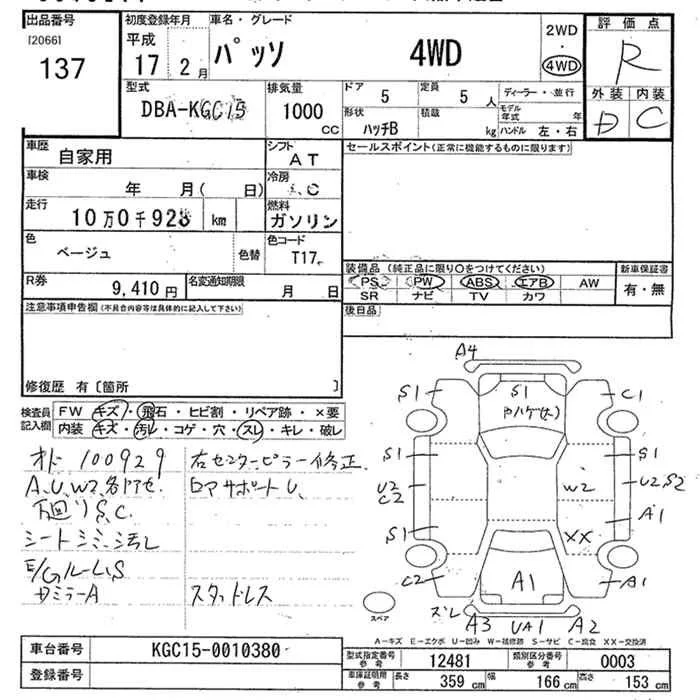 出品番号
[2066]
137
初度登録年月
平成
17 2月
車名・グレード
パッソ 4WD
2WD
・
4WD
評価点
R
外装 内装
D C
型式
DBA-KGC15
排気量
1000
CC
ドア
5
定員
5人
ディーラー・並行
形状
ハッチB
積載
kg
モデル年式
年
ハンドル 左・右
車歴
自家用
シフト
AT
セールスポイント(正常に機能するものに限ります)
車検
年 月( 日)
冷房
走行
10万0千928 km
燃料
ガソリン
色
ベージュ
色替
色コード
T17
装備品 (純正品に限り○をつけてください)
新車保証書
PS PW ABS エアB AW
有・無
SR ナビ TV カワ
R券
9,410円
名変通知期限
月 日
後日品
注意事項申告欄(不具合内容等は具体的に記入して下さい)
修復歴 有〔箇所 〕
検査員
記入欄
FW キズ・飛石・ヒビ割・リペア跡・×要
内装 キズ・汚レ・コゲ・穴・スレ・キレ・破レ
オド 100929
A,U,W2,各ドア
S,C
シートシミ,汚レ
E/Gルーム S
サミラーA
右センターピラー修正
ロアサポートU
スタッドレス
A4
S1
S1
C1
S1
S1
U2
C2
W2
U2 S2
S1
A1
XX
C2
A1
A1
スレ
A3
UA1
A2
スペア
A－キズ E－エクボ U－凹み W－補修跡 S－サビ C－腐食 XX－交換済
車台番号
KGC15-0010380
登録番号
型式指定番号
参考
12481
類別区分番号
参考
0003
車庫証明用
参考
長さ
359 cm
幅
166 cm
高さ
153 cm